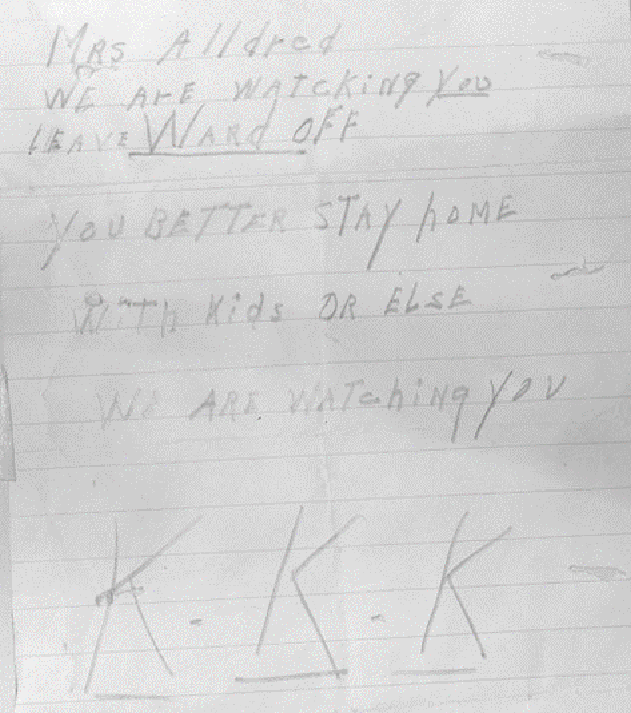 MRS Alldred
WE ArE WATcKing you
LEAVE WARd OFF
you BETTER STAY hOME
WiTh Kids OR ELSE
WE ARE WATchiNg YOU
K - K - K